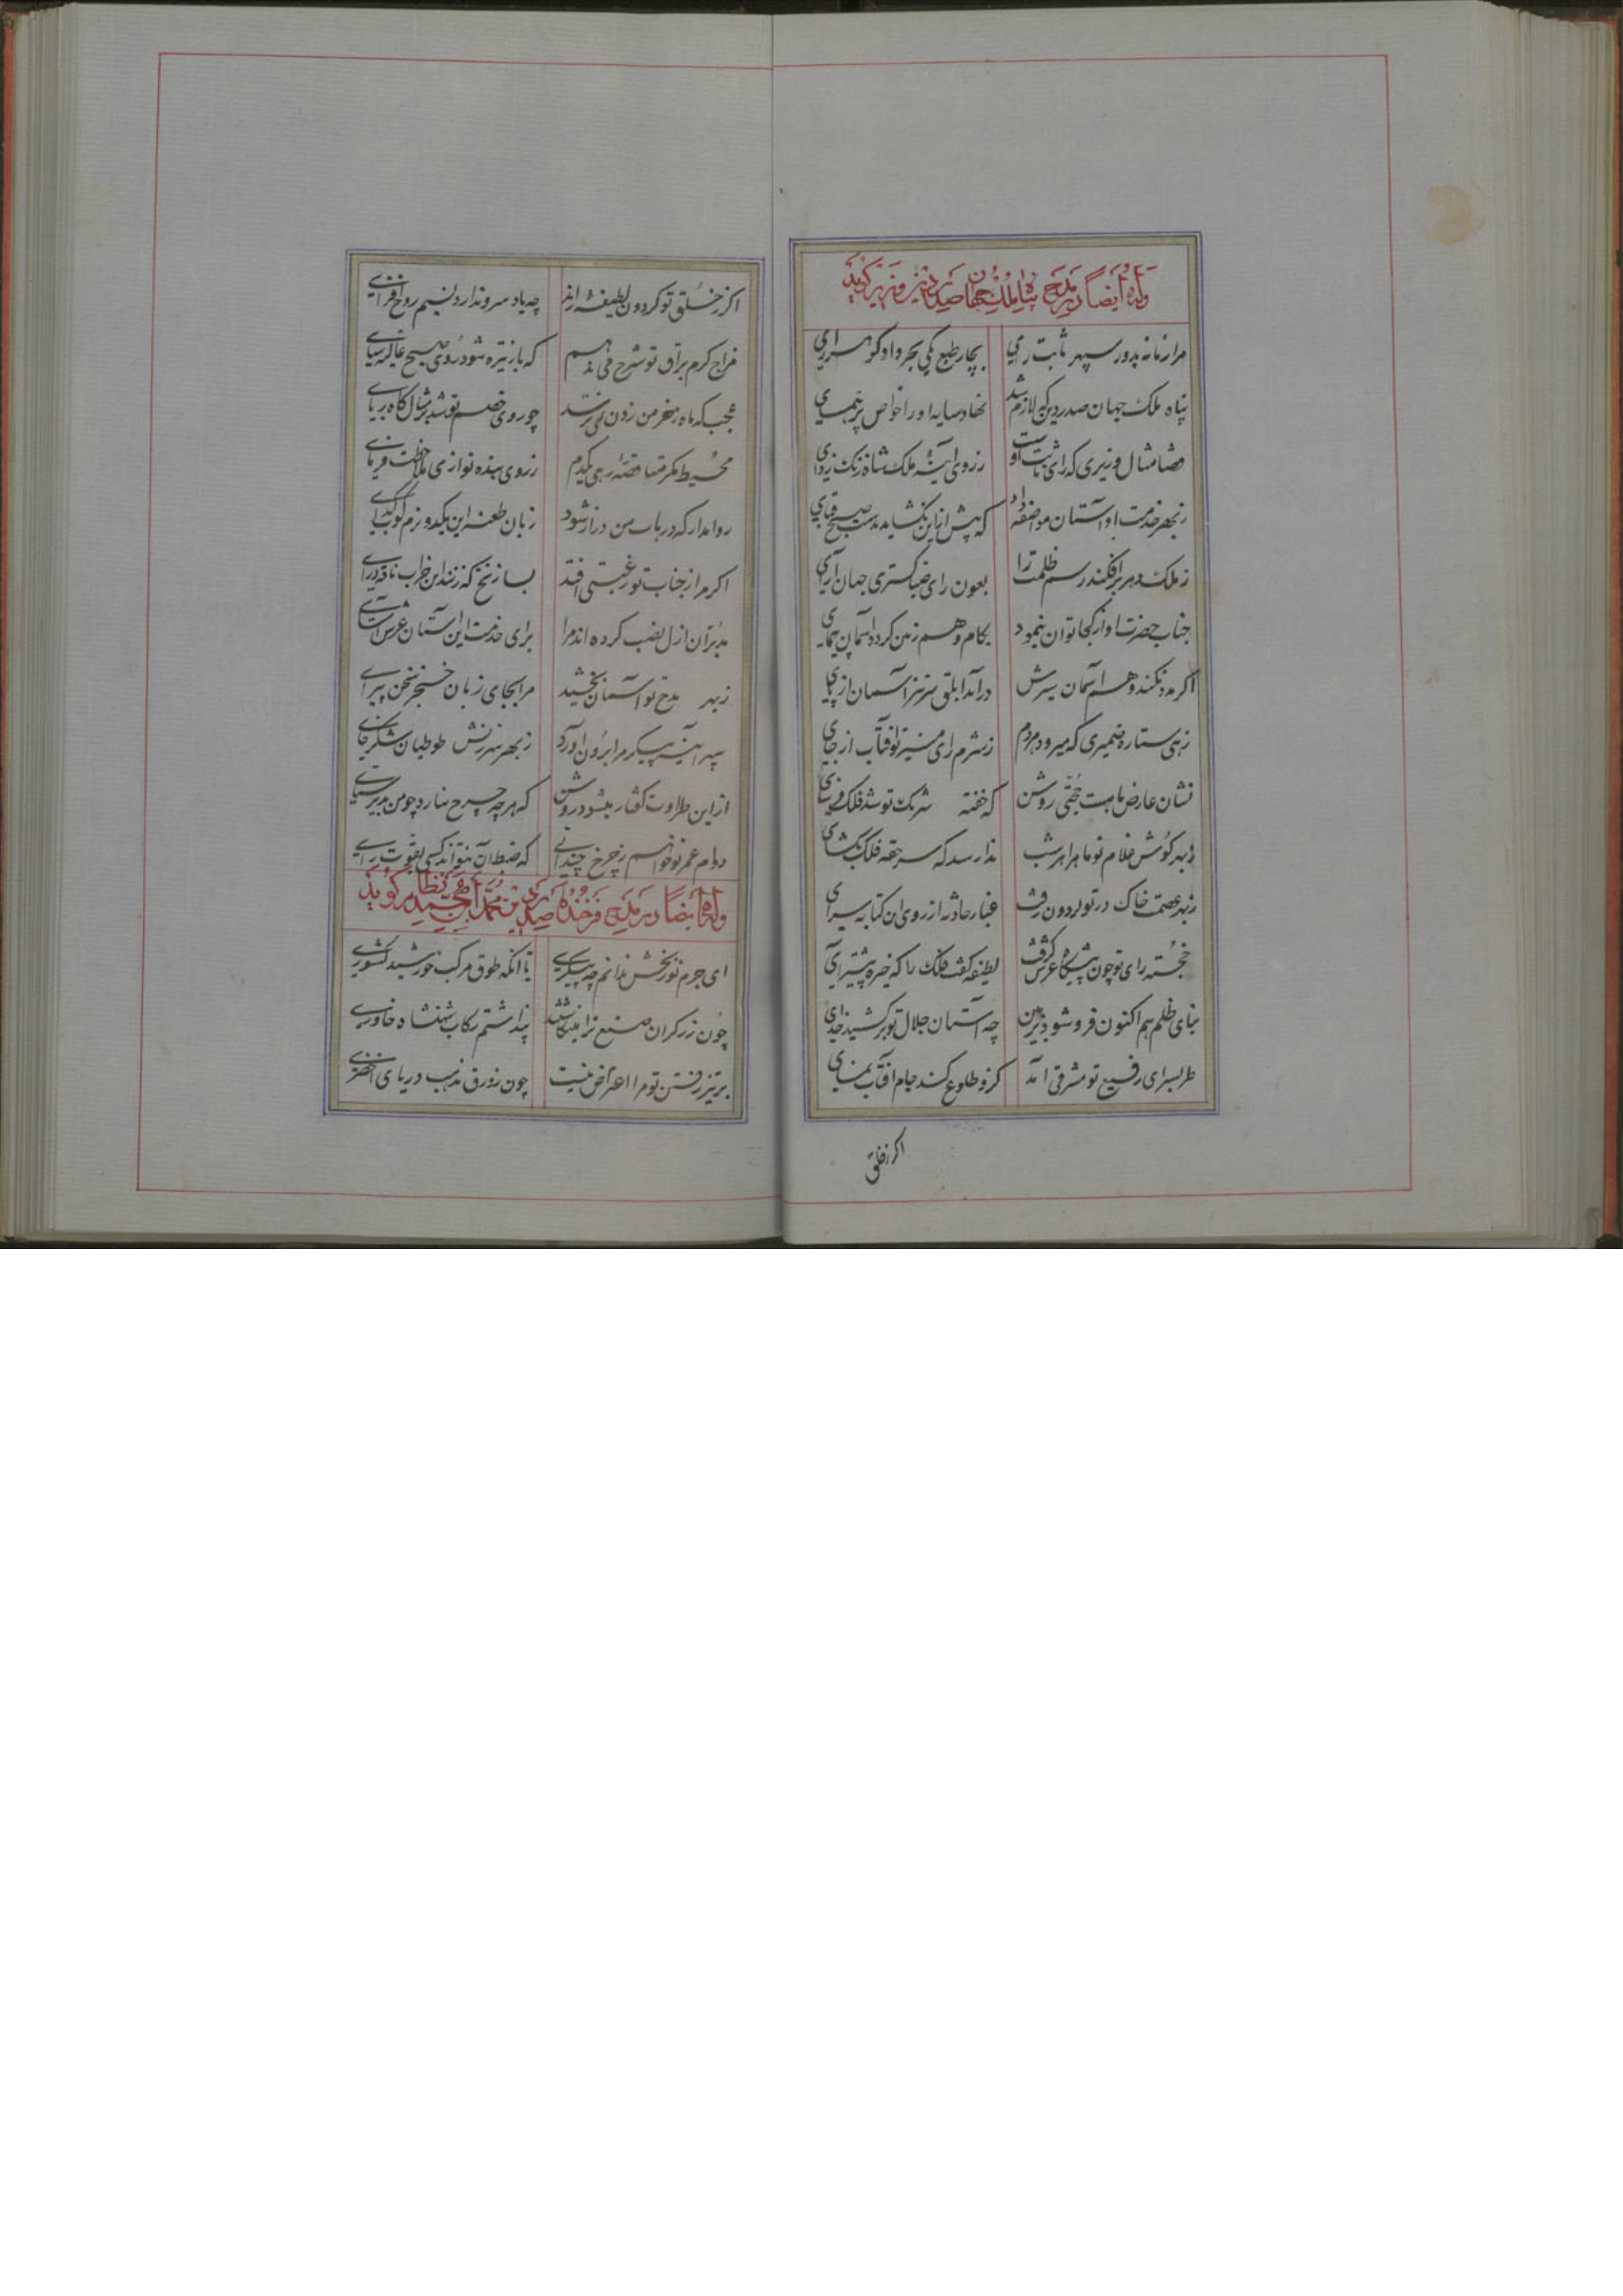 وله ایضاً در مدح پناه ملک جهان صدر دین وزیر گوید
مرا زمانه بدور سپهر ثابت رای بچار طبع یکی بحر داد گوهر زای
پناه ملک جهان صدر دین که لازم شد نهاد سایه او را خواص پر همای
قضا مثال وزیری که رای ثابت اوست ز روی آینه ملک شاه زنک زدای
ز بهر خدمت او آستان مواضعه داد که پیش ازین نکشاید بدست صبح قبای
ز ملک دهر برافکند رسم ظلمت را بعون رای ضیا کستری جهان آرای
جناب حضرت او از کجا توان پیمود بکام وهم زمین کرد آسمان پیمای
اکر مدد نکند وهم آسمان سیرش درآید ابلق سرتیز آسمان از پای
زهی ستاره ضمیری که میرود هر دم ز شرم رای منیر تو آفتاب از جای
نشان عارض ماهست حجتی روشن که خفته شربک تو شد فلک فرسای
دبد کوش غلام تو ماه را هر شب ندا رسد که سر حقه فلک بکشای
زند عصمت خاک در تو کردون رفت غبار حادثه از روی این کتابه سرای
خجسته رای تو چون پیشگاه عرش گرفت لطیفه گفت فلک را که خیره بیشتر آی
بنای ظلم هم اکنون فرو شود بزمین چه آستان جلال تو برکشید خدای
طربسرای رفیع تو مشرقی آمد کزو طلوع کند جام آفتاب نمای
اکر زخلق
اکر زخلق تو کردون لطیفه راند چه باد سرو ندارد نسیم روح افزای
مزاج کرم براق تو شرح می ندهم که باز تیره شود روی صبح غالیه سای
عجب که ماه ز خرمن زدن نمی ترسد چو روی خصم تو شد بر مثال کاه ربای
محیط مکرمتا قصه رهی یکدم ز روی بنده نوازی ملاحظت فرمای
روا مدار که در باب من دراز شود زبان طعنه این یکدو نرم کوب کدای
اکر مرا ز جناب تو غیبتی افتد بسا زنخ که زنند این خراب ناقه درای
مدبران ازل نصب کرده اند مرا برای خدمت این آستان عرش آسای
زبهر مدح تو آستان بخشید مرا بجای زبان خنجر سخن پیرای
سپهر آینه پیکر مرا برون آورد ز بهر سرزنش طوطیان شکر خای
از این طراوت کفتار میشود روشن که هر چه چرخ بنارد چو من مدیح سرای
دوام عمر تو خواهم ز چرخ چندانی که ضبط آن نتواند کسی بقوت رای
وله ایضاً در مدح فرخنده صدر دین محمد ابن محمد نظام گوید
ای جرم نور بخش ندانم چه پیکری یا آنکه طوق مرکب خورشید کشوری
چون زرکران صنع ترا مینکاشتند پنداشتم رکاب شهنشاه خاوری
بر تیز رفتن تو مرا اعتراض نیست چون زورق مذهب دریای اخضری